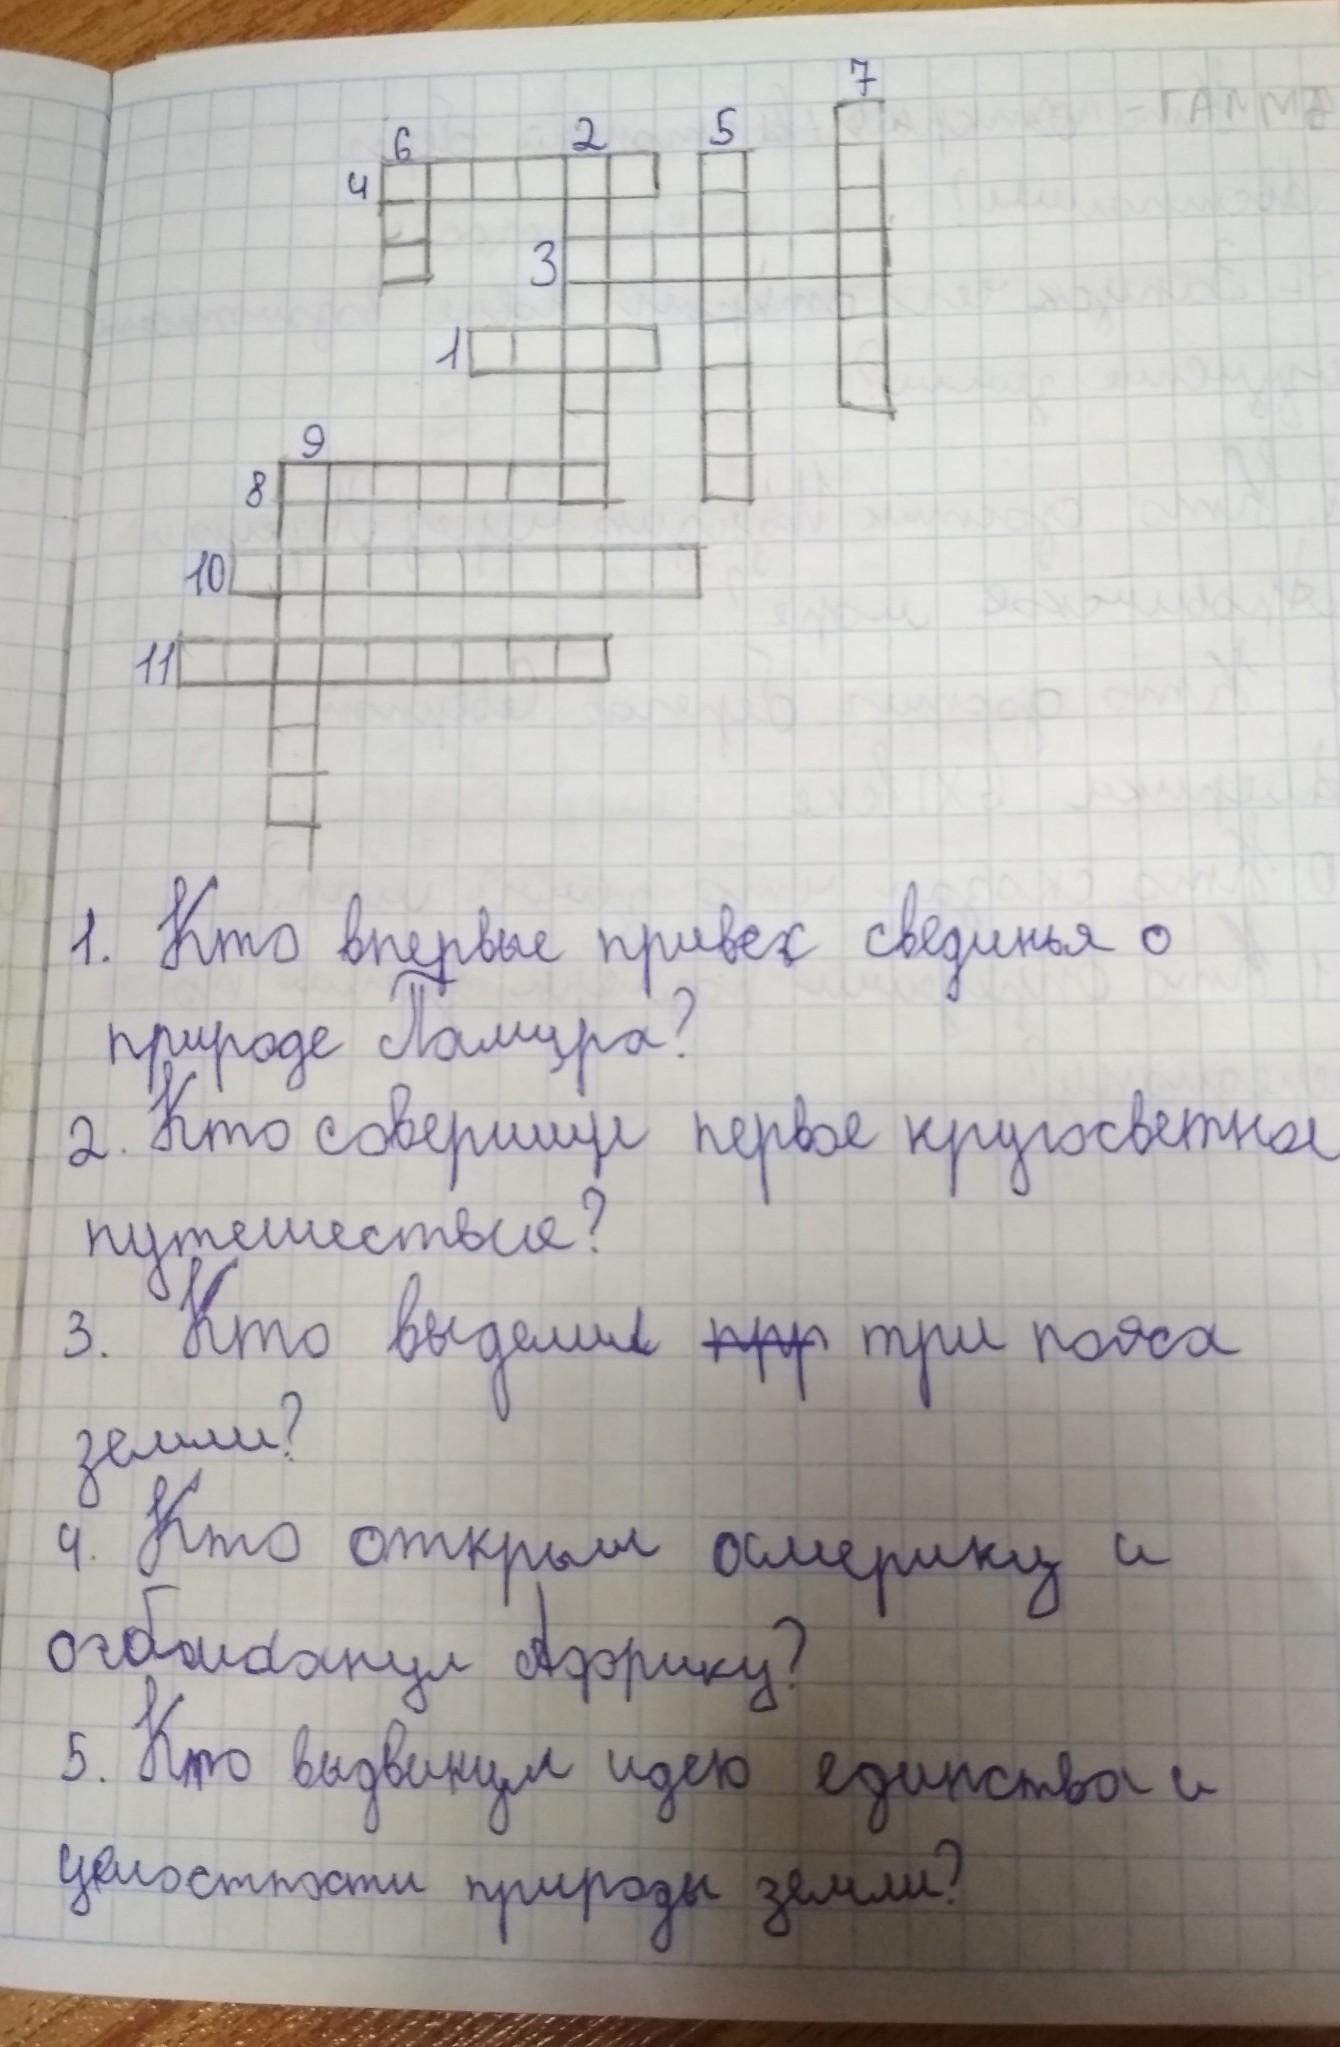 7
6 2 5
4
3
1
9
8
10
11
1. Кто впервые привек свединья о
природе Памира?
2. Кто совершил первое кругосветное
путешествие?
3. Кто выделил три пояса
земли?
4. Кто открыл америку и
Африку?
5. Кто выдвинул идею единства и
целостности природы земли?